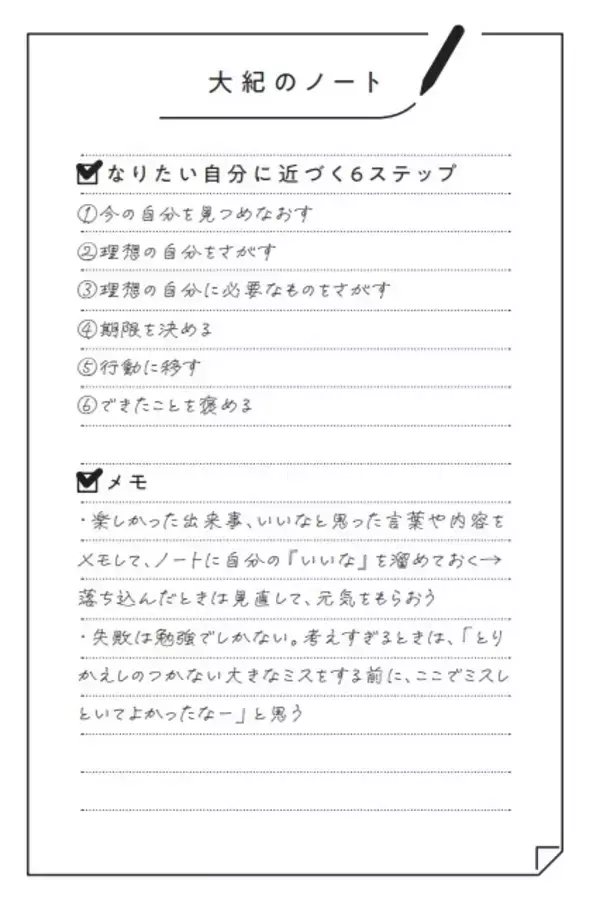 大紀のノート
なりたい自分に近づく6ステップ
①今の自分を見つめなおす
②理想の自分をさがす
③理想の自分に必要なものをさがす
④期限を決める
⑤行動に移す
⑥できたことを褒める
メモ
・楽しかった出来事、いいなと思った言葉や内容を
メモして、ノートに自分の『いいな』を溜めておく→
落ち込んだときは見直して、元気をもらおう
・失敗は勉強でしかない。考えすぎるときは、「とり
かえしのつかない大きなミスをする前に、ここでミスし
といてよかったなー」と思う